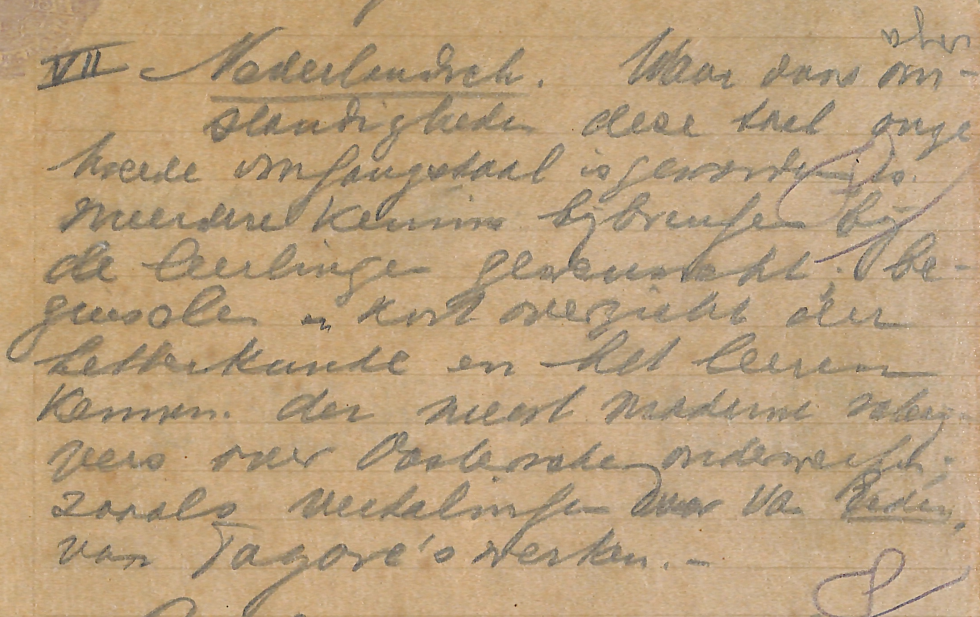 VII Nederlandsch. Waar door om-
standigheden deze taal onze
tweede omgangstaal is geworden is
meerdere kennis bijbrengen bij
de leerlingen gewenscht; be-
ginselen en kort overzicht der
Letterkunde en het leeren
kennen der meest moderne schrij-
vers over Oostersche onderwerpen,
zooals vertalingen door Van Eeden,
van Tagore's werken.-